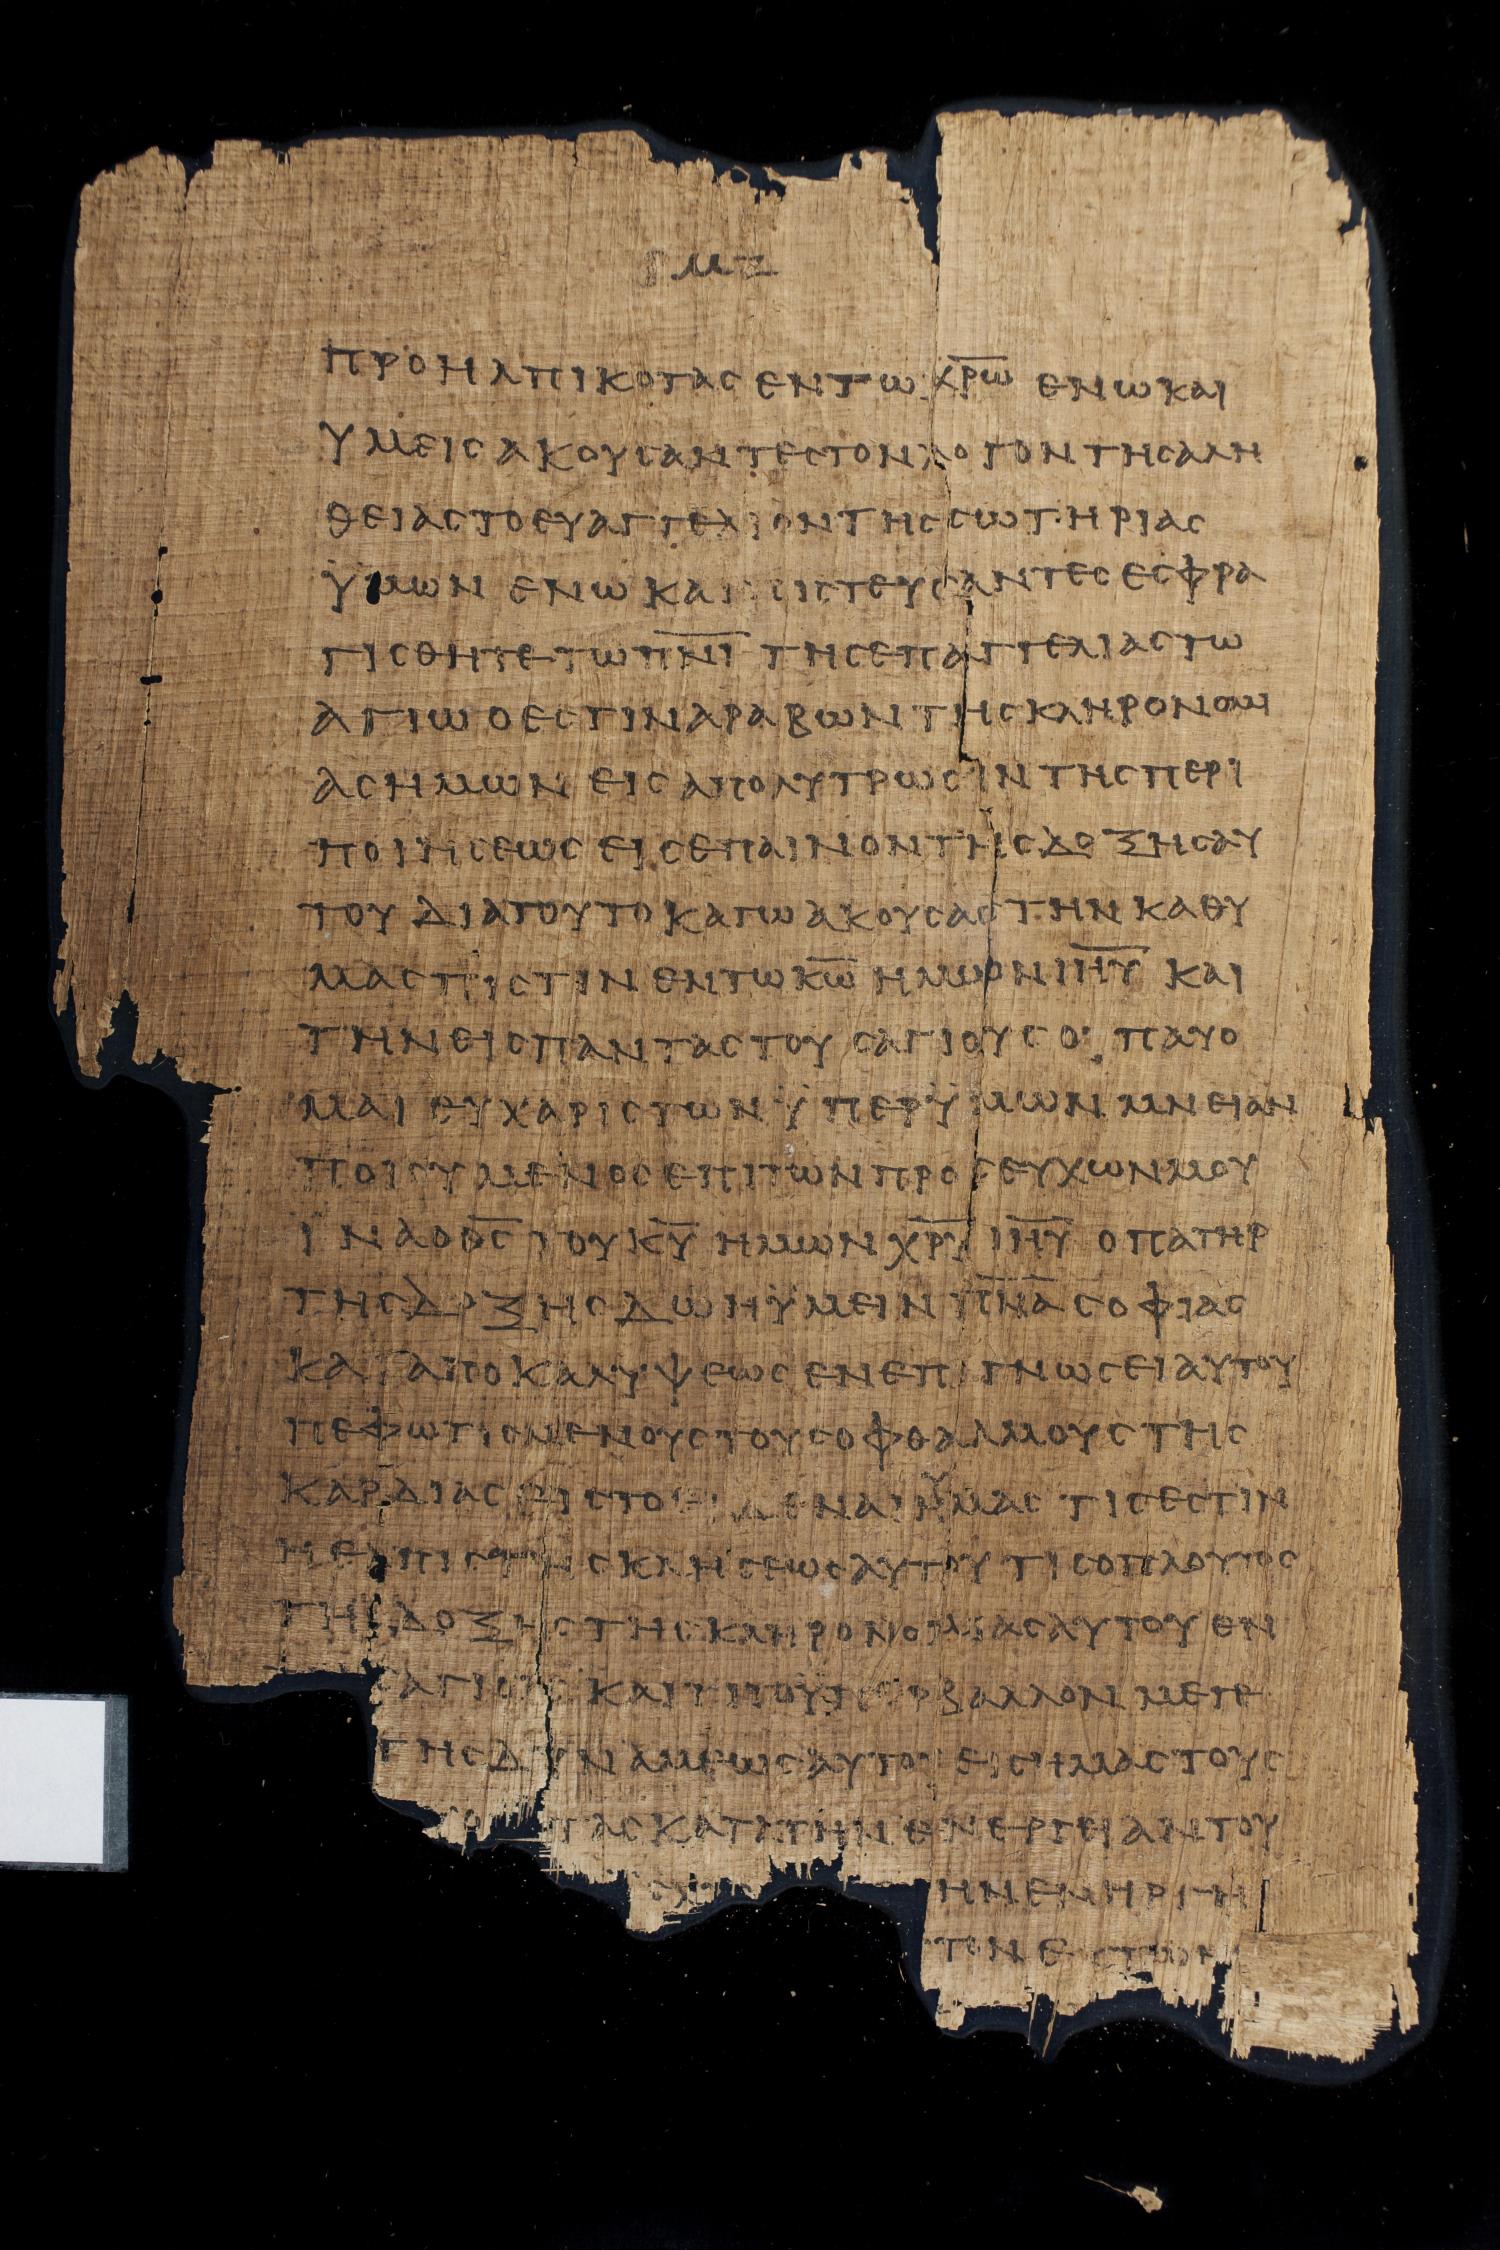 ρμζ
προηλπικοτας εν τω χ̅ρ̅ω̅ εν ω και
υμεις ακουσαντες τον λογον της αλη
θειας το ευαγγελιον της σωτηριας
ϋμων εν ω και πιστευσαντες εσφρα
γισθητε τω π̅ν̅ι̅ της επαγγελιας τω
αγιω ο εστιν αραβων της κληρονομι
ας ημων εις απολυτρωσιν της περι
ποιησεως εις επαινον της δοξης αυ
του δια τουτο καγω ακουσας την καθ υ
μας πιστιν εν τω κ̅ω̅ ημων ι̅η̅υ̅ και
την εις παντας τους αγιους ου παυο
μαι ευχαριστων ϋπερ ϋμων μνειαν
ποιουμενος επι των προσευχων μου
ινα ο θ̅ς̅ του κ̅υ̅ ημων χ̅ρ̅υ̅ ι̅η̅υ̅ ο πατηρ
της δοξης δωη ϋμειν π̅ν̅α̅ σοφιας
και αποκαλυψεως εν επιγνωσει αυτου
πεφωτισμενους τους οφθαλμους της
καρδιας εις το ειδεναι υμας τις εστιν
η ελπις της κλησεως αυτου τις ο πλουτος
της δοξης της κληρονομιας αυτου εν
αγιοις και τι το ϋπερβαλλον μεγε
της δυναμεως αυτου εις ημας τους
τας κατα την ενεργειαν του
ην ενηργη
τον ες των